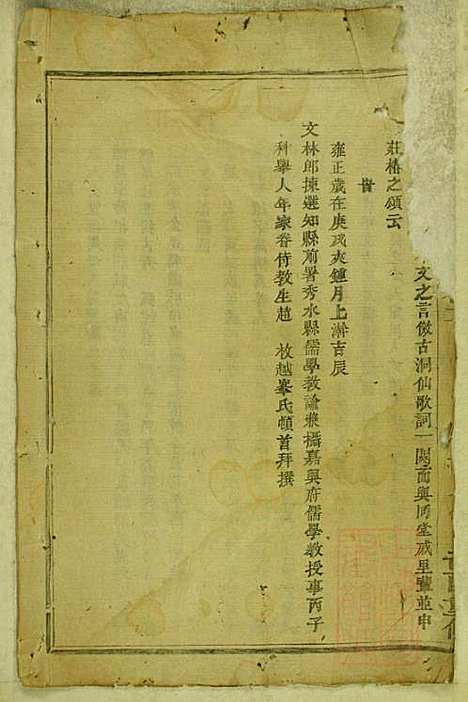 文之言倣古洞仙歌詞一闋而與同堂戚里輩並申
莊椿之頌云
旹
雍正歲在庚戌夾鍾月上澣吉辰
文林郎揀選知縣前署秀水縣儒學教諭兼攝嘉興府儒學教授事丙子
科舉人年家眷侍教生趙 枚越峯氏頓首拜撰